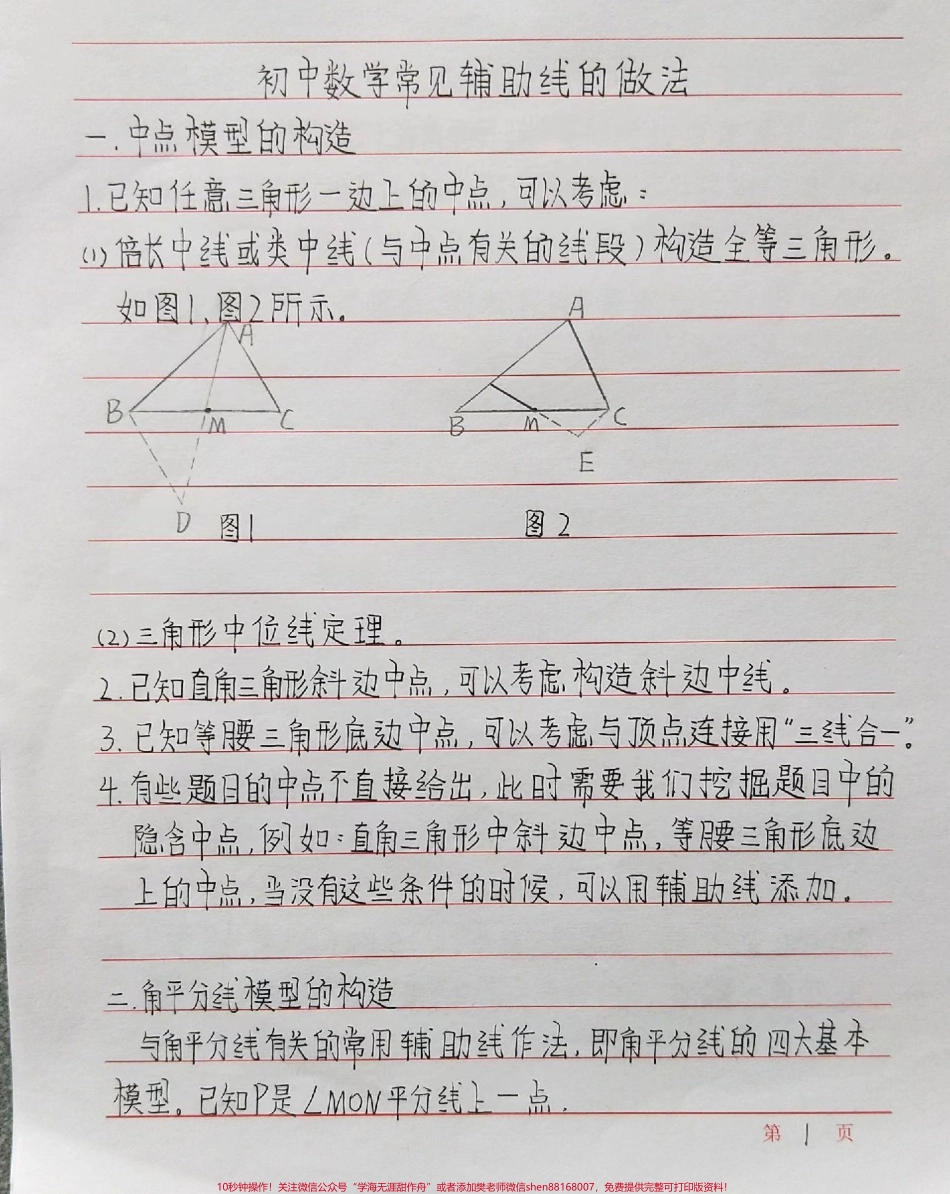 初中数学常见辅助线的做法
一.中点模型的构造
1.已知任意三角形一边上的中点,可以考虑:
(1)倍长中线或类中线(与中点有关的线段)构造全等三角形。
如图1、图2所示。
A
A
B
M
C
B
M
C
E
D
图1
图2
(2)三角形中位线定理。
2.已知直角三角形斜边中点,可以考虑构造斜边中线。
3.已知等腰三角形底边中点,可以考虑与顶点连接用“三线合一”。
4.有些题目的中点不直接给出,此时需要我们挖掘题目中的
隐含中点,例如:直角三角形中斜边中点,等腰三角形底边
上的中点,当没有这些条件的时候,可以用辅助线添加。
二.角平分线模型的构造
与角平分线有关的常用辅助线作法,即角平分线的四大基本
模型。已知P是∠MON平分线上一点.
第 1 页
10秒钟操作!关注微信公众号“学海无涯甜作舟”或者添加樊老师微信shen88168007,免费提供完整可打印版资料!